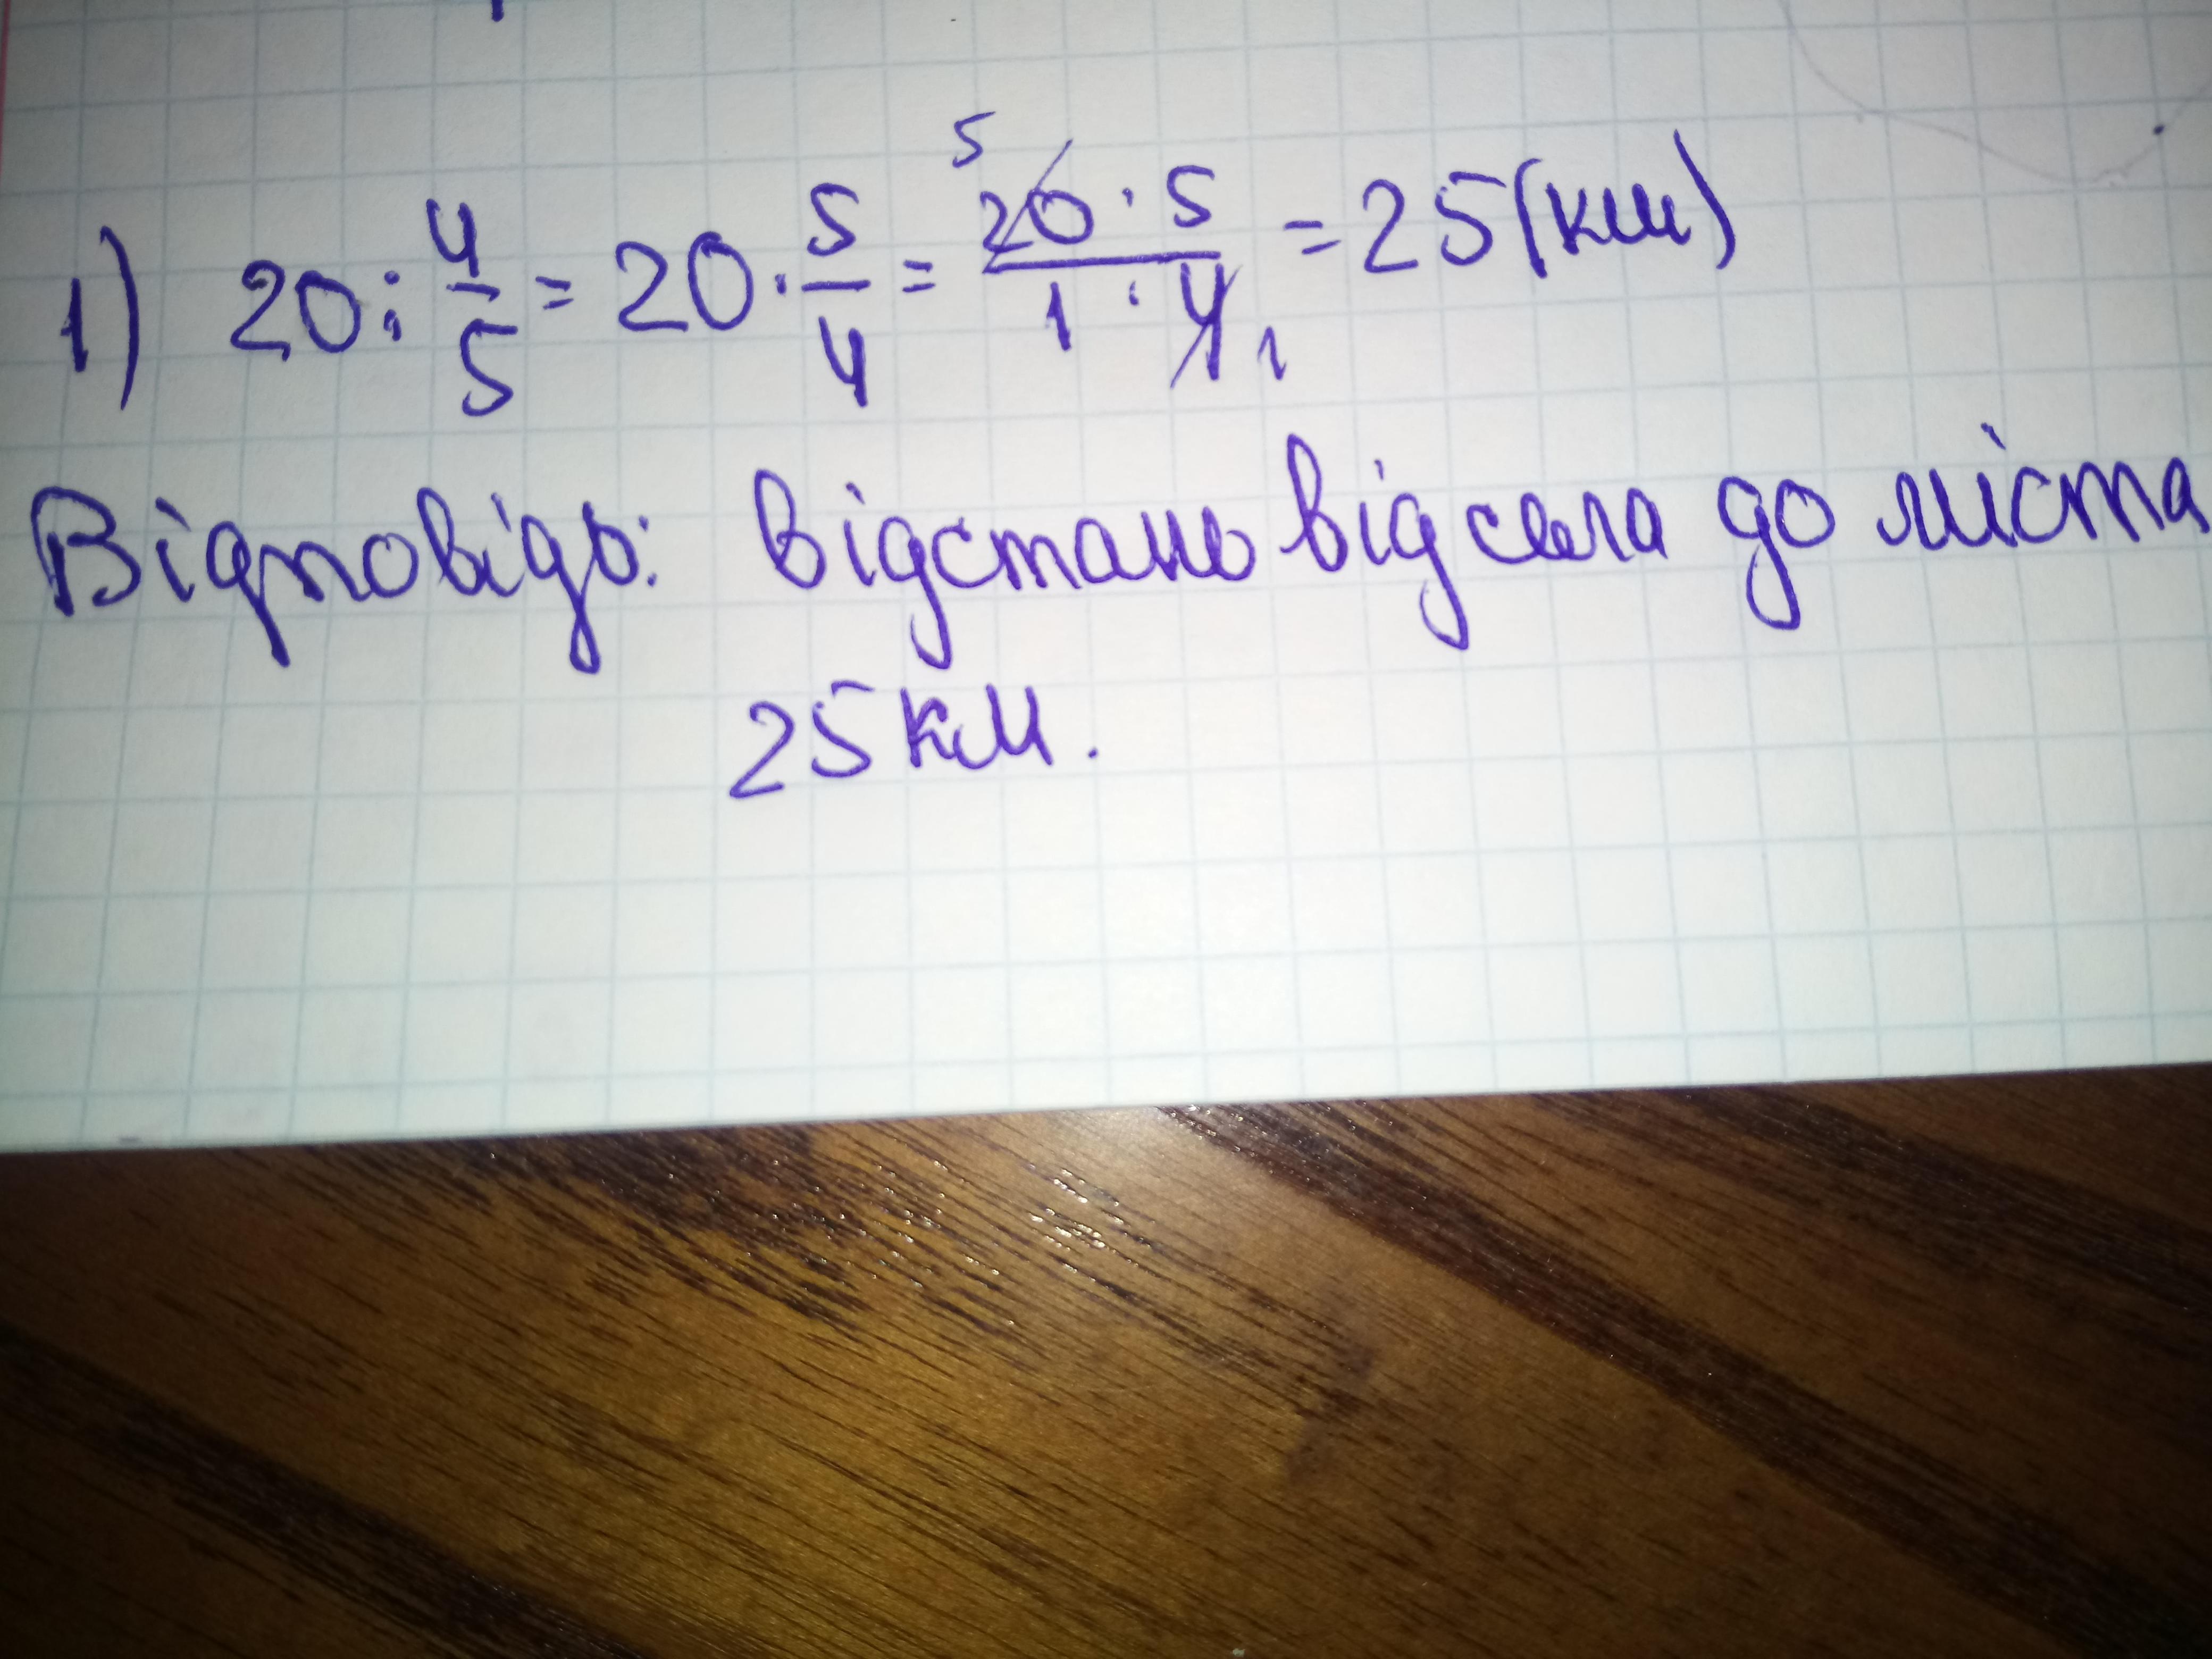 1) 20 : 4/5 = 20 · 5/4 = 5 20 · 5 / 1 · 4 1 = 25 (км)
Відповідь: відстань від села до міста
25 км.